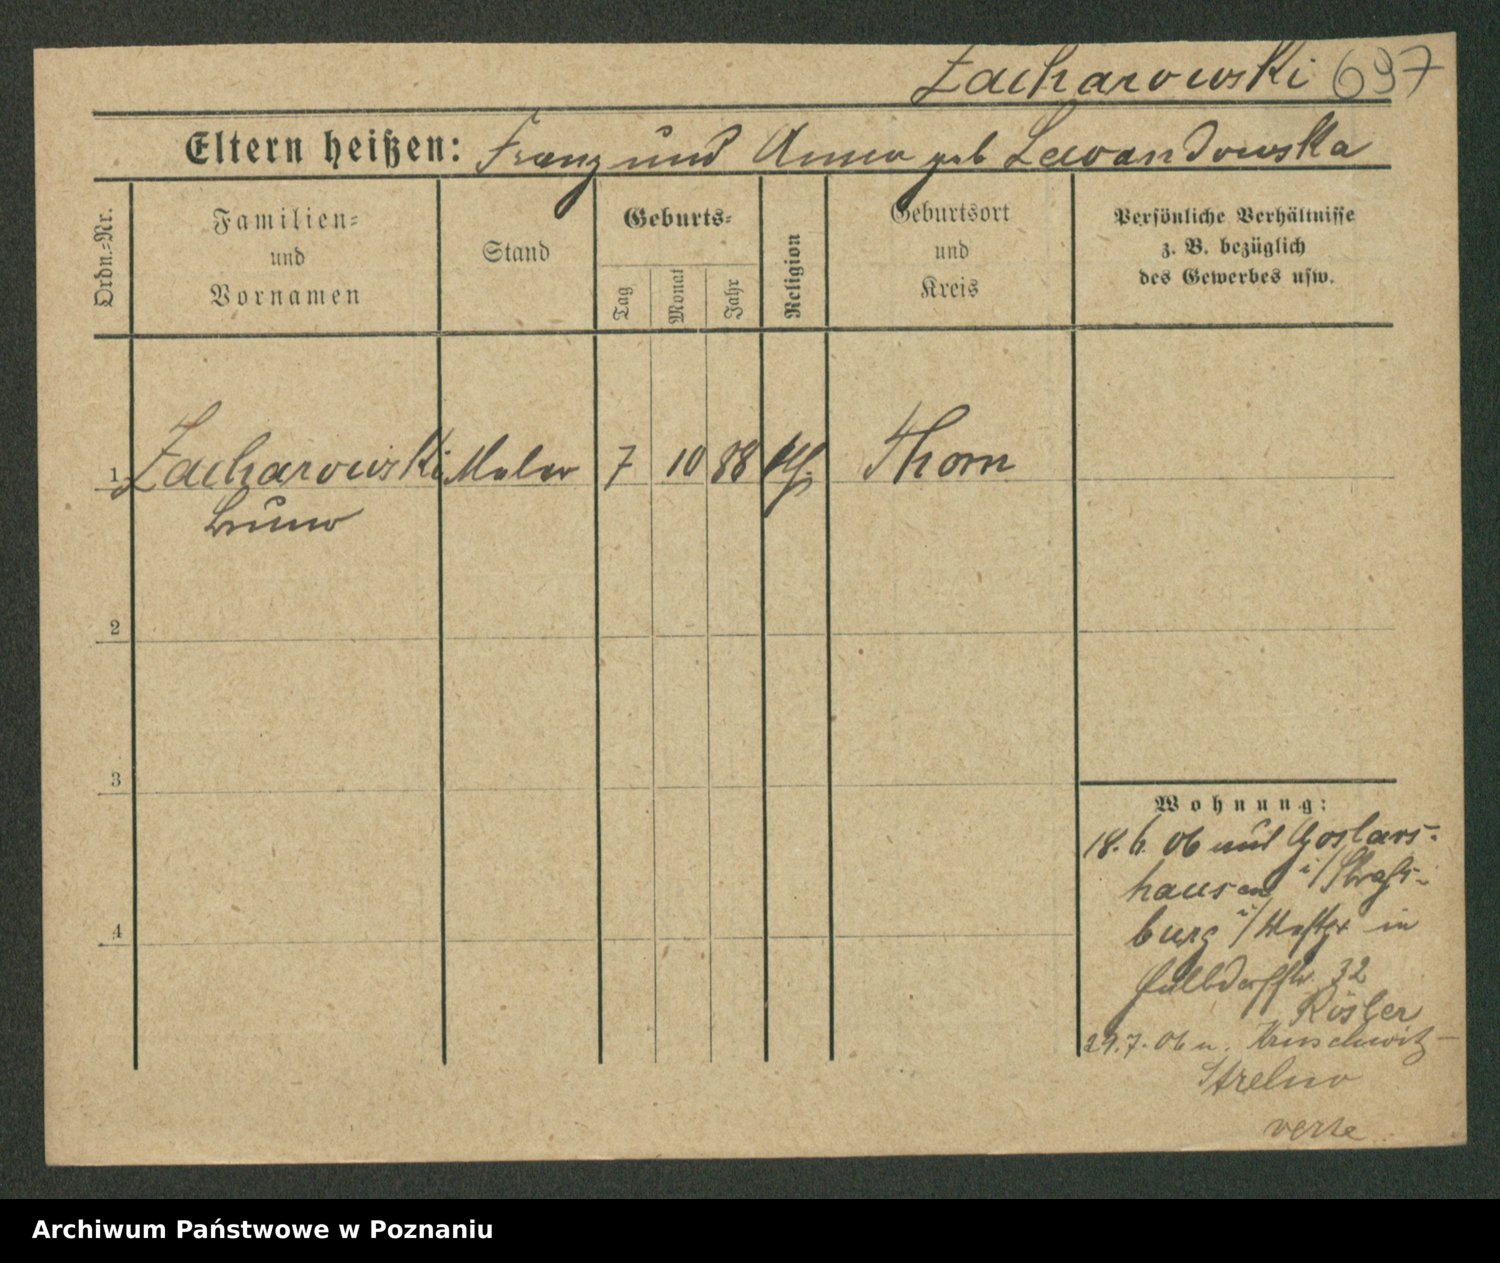 Zacharowski 697
Eltern heißen: Franz und Anna geb Lewandowska
Ordn.=Nr.
Familien=
und
Vornamen
Stand
Geburts=
Tag
Monat
Jahr
Religion
Geburtsort
und
Kreis
Persönliche Verhältnisse
z. B. bezüglich
des Gewerbes usw.
1 Zacharowski Maler 7 10 88 kth. Thorn
Bruno
2
3
4
Wohnung:
18. 6. 06 aus Goslars-
hausen i/ Straß-
burg i/ Westpr in
32
Rösler
29.7.06 n. Kruschwitz-
Strelno
verte
Archiwum Państwowe w Poznaniu